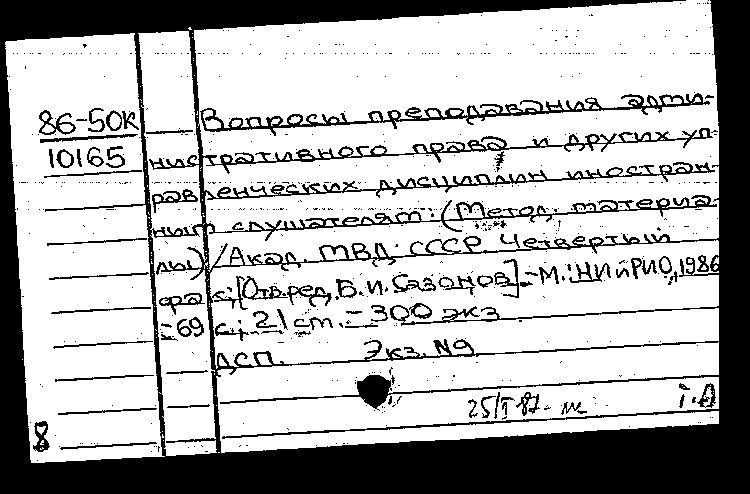 86-50к
10165
Вопросы преподавания адми-
нистративного права и других уп-
равленческих дисциплин иностран-
ным слушателям: (Метод. материа-
лы) / Акад. МВД СССР. Четвертый
фак.; [Отв. ред. Б.И. Сазонов] - М.: НИ и РИО, 1986
- 69 с.; 21 cm. - 300 экз
ДСП. Экз. N9
25/I 87
8